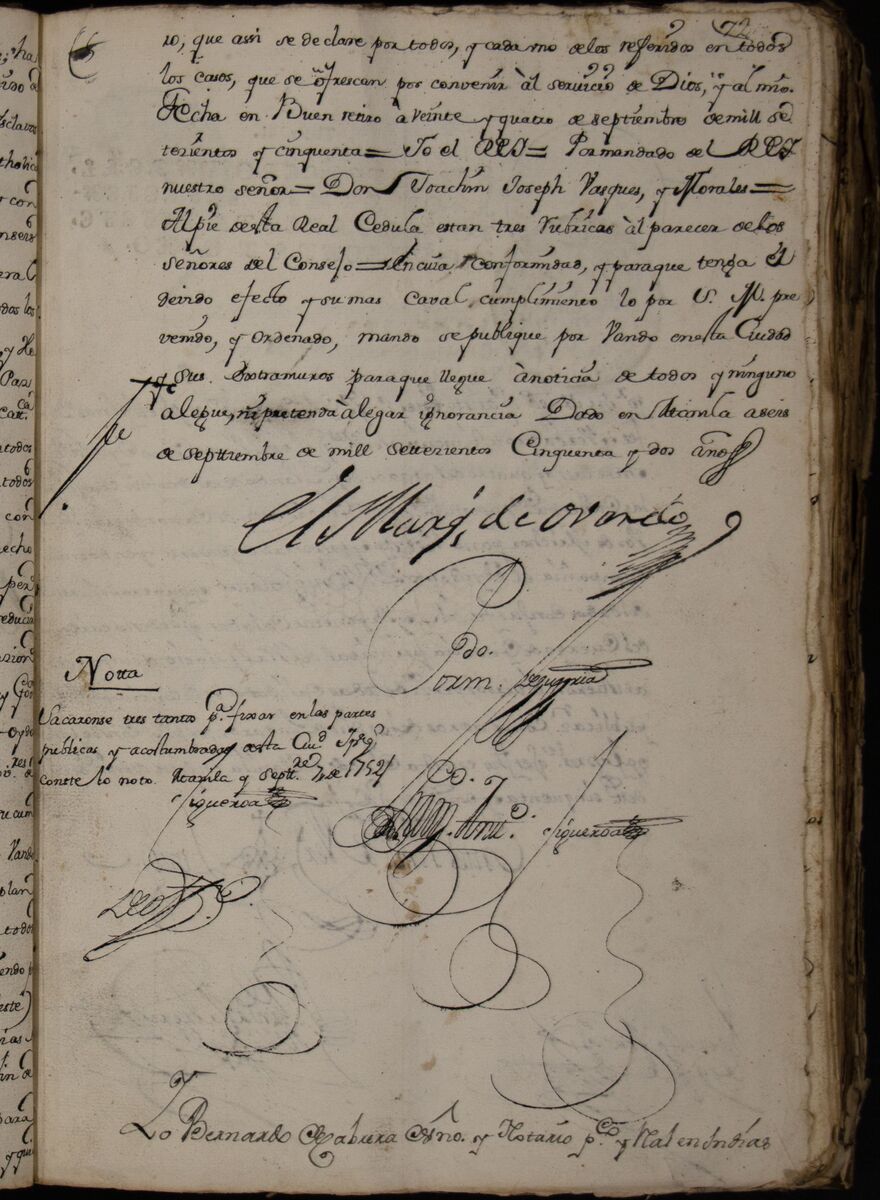 72
ro, que assi se declare por todos, y cada uno de los referidos en todos
los casos, que se ofrescan por convenir àl servicio de Dios, y al mio.
Fecha en Buen retiro à veinte y quatro de septiembre de mill se
tezientos y cinquenta = Yo el REY = Por mandado del REY
nuestro señor = Don Joachin Joseph Vasques, y Morales =
Al pie desta Real Cedula estan tres rubricas àl parecer de los
señores del Consejo = En cuia conformidad, y para que tenga el
devido efecto y su mas caval cumplimiento lo por S. M. pre
venido, y ordenado, mando se publique por Vando en esta Ciudad
y sus extramuros para que llegue à noticia de todos y ninguno
alegue, ni pretenda àlegar ignorancia Dado en Manila a seis
de septtiembre de mill settezientos Cinquenta y dos años
El Marqs. de ovando
Pormdo. de su sria
Notta
Sacaronse tres tantos pa. fixar en las partes
publicas y acostumbradas desta Ciud. y pa. q
conste lo noto. Manila y Septt.re 7 de 1752
Figueroa
Antt.o Figueroa
Yo Bernardo Cabura Sño. y Notario pco. y Rl. en Indias